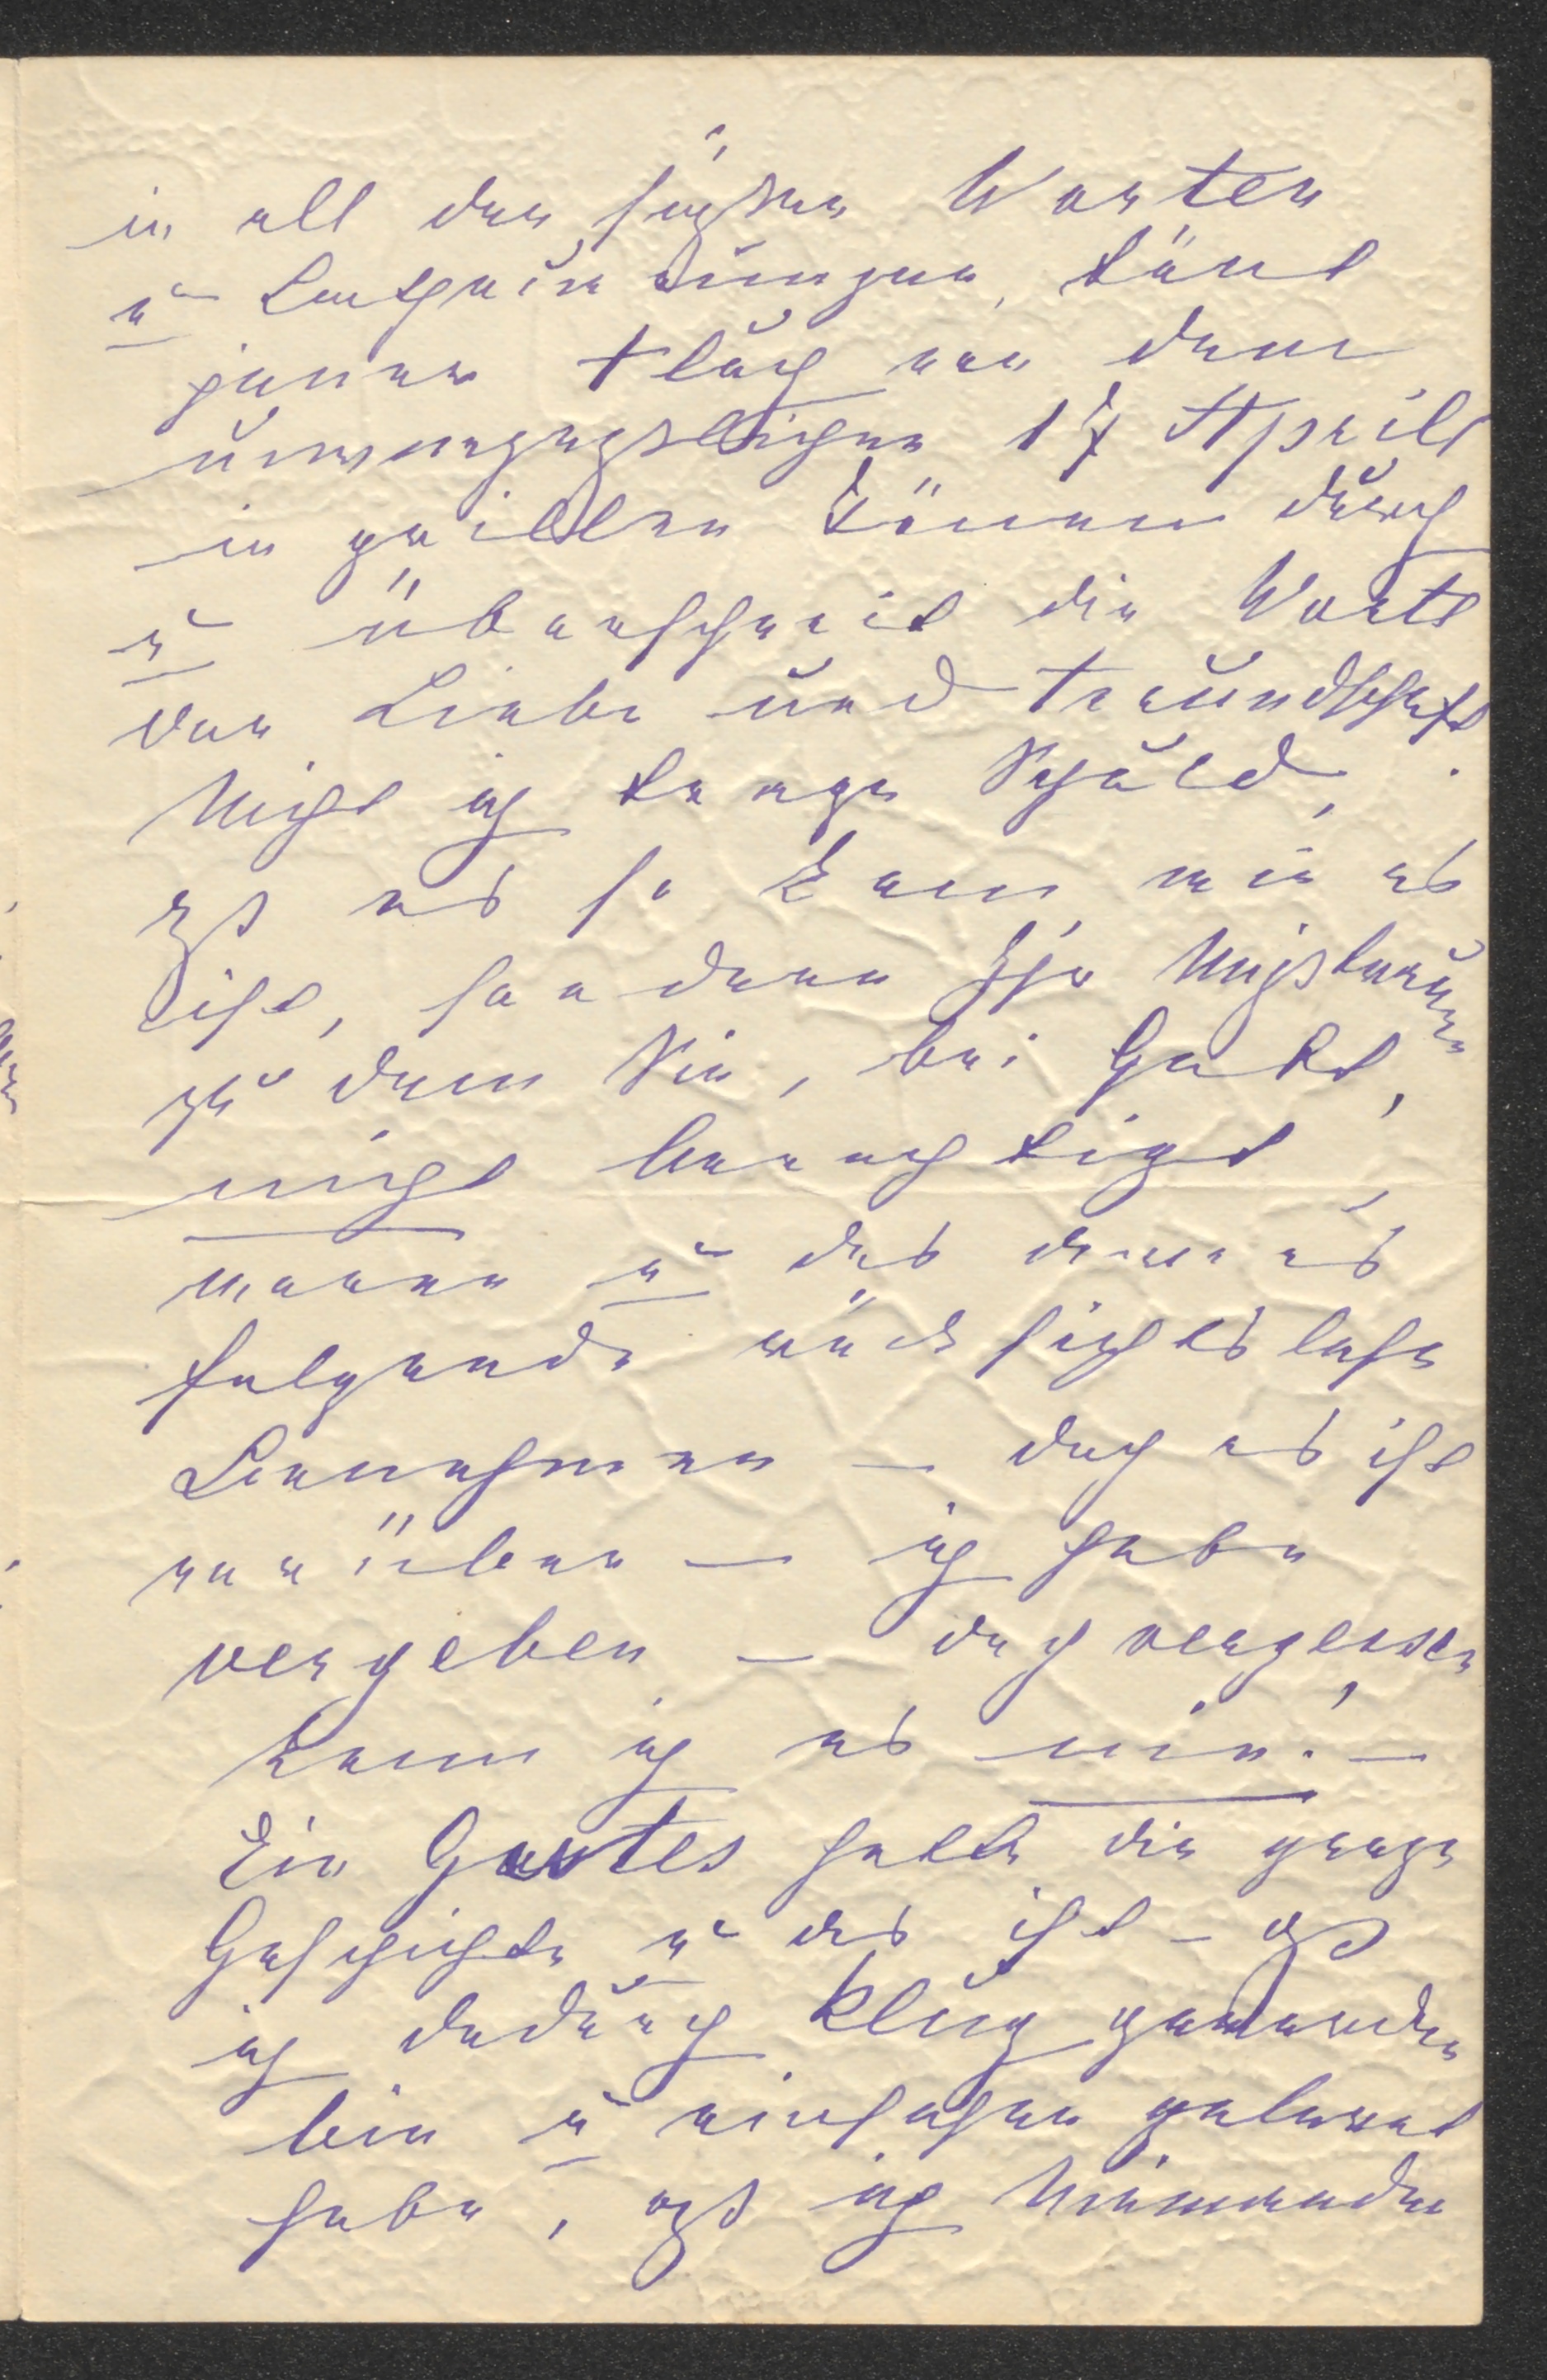 in all den süßen Worten
u Betheuerungen, tönt
jener Fluch von dem
unvergeßlichen 17 April
in grellen Tönen durch
u überschreit die Worte
der Liebe und Freundschaft.
Nicht ich trage Schuld,
daß es so kam wie es
ist, sondern Ihr Mißtrauen
zu dem Sie, bei Gott,
nicht berechtigt,
waren u das demas
folgende rücksichtslose
Benehmen — doch es ist
vorüber — ich habe
vergeben — doch vergessen
kann ich es nie! —
Ein Gutes hatte die ganze
Geschichte u das ist – daß
ich dadurch klug geworden
bin u einsehen gelernt
habe, daß ich Niemanden